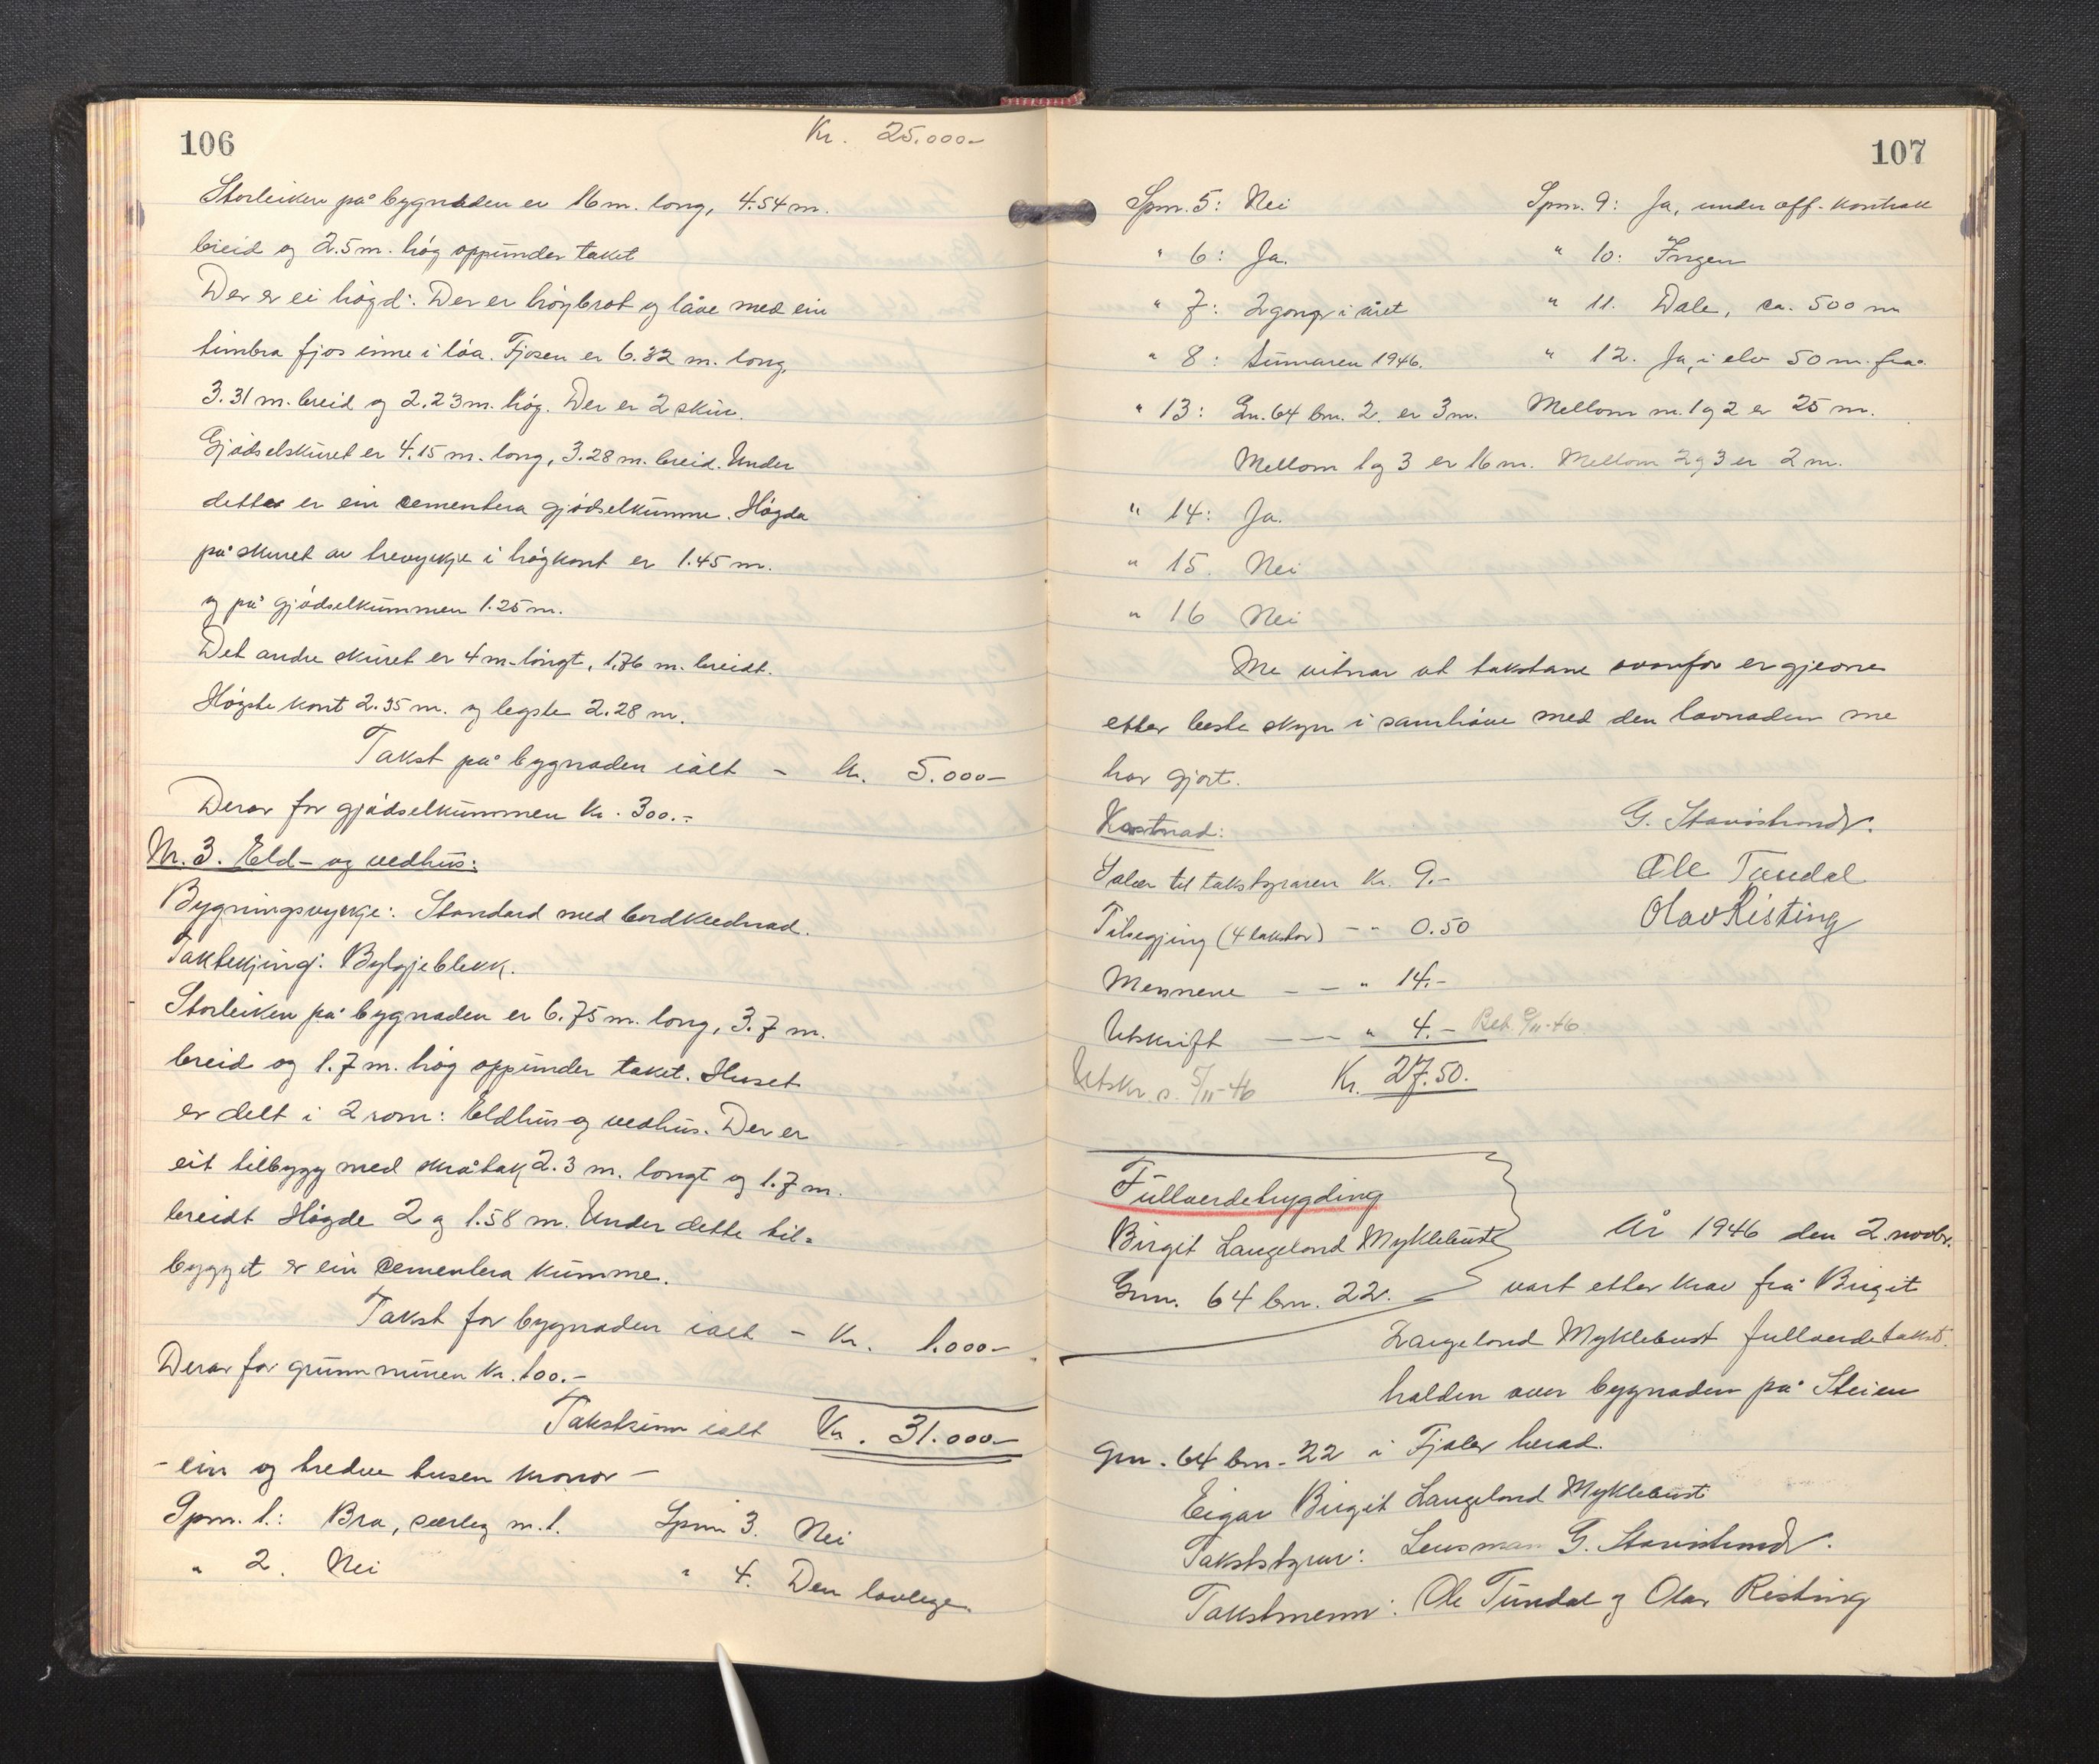 106
Kr. 25.000-
Storleiken på bygnaden er 16 m. long, 4.54 m.
breid og 2.5 m. høg oppunder taket
Der er ei høgd: Der er høybrot og låve med ein
timbra fjos inne i løa. Fjosen er 6.32 m. long,
3.31 m. breid og 2.23 m. høg. Der er 2 skur.
Gjødselskuret er 4.15 m. long, 3.28 m. breid. Under
dette er ein cementera gjødselkumme. Høgda
på skuret av trevyrkje i høgkant er 1.45 m.
og på gjødselkummen 1.25 m.
Det andre skuret er 4 m. longt, 1.76 m. breidt.
Høgste kant 2.35 m. og legste 2.28 m.
Takst på bygnaden ialt - kr. 5.000-
Derav for gjødselkummen kr. 300.-
Nr. 3. Eld- og vedhus:
Bygningsvyrkje: Standard med bordklednad.
Taktekjing: Bylgjeblekk.
Storleiken på bygnaden er 6.75 m. long, 3.7 m.
breid og 1.7 m. høg oppunder taket. Huset
er delt i 2 rom: Eldhus og vedhus. Der er
eit tilbygg med skråtak 2.3 m. longt og 1.7 m.
breidt Høgde 2 og 1.58 m. Under dette til-
bygget er ein cementera kumme.
Takst for bygnaden ialt - Kr. 1.000-
Derav for grunnmuren kr. 100.-
Takstsum ialt Kr. 31.000-
- ein og tredve tusen kronor -
Spm. 1.: Bra, særleg nr. 1. Spm 3. Nei
" 2. Nei " 4. Den lovlege.
107
Spm. 5: Nei Spm. 9: Ja, under off. kontroll
" 6: Ja. " 10: Ingen
" 7: 2 gongr i året " 11. Dale, ca. 500 m
" 8: Sumaren 1946. " 12. Ja, i elv 50 m. frå.
" 13: Gn. 64 bn. 2. er 3 m. Mellom nr. 1 og 2 er 25 m.
Mellom 1 og 3 er 16 m. Mellom 2 og 3 er 2 m.
" 14: Ja.
" 15. Nei
" 16 Nei
Me vitnar at takstane ovanfor er gjevne
etter beste skyn i samhøve med den lovnaden me
har gjort.
Kostnad: G. Stavistrand.
Salær til takststyraren Kr. 9.- Ole Tundal
Tilsegjing (4 takstar) - " 0.50 Olav Risting
Mennene - - " 14.-
Utskrift --- " 4.- Bet. 9/11-46
Utskr. s. 5/11-46 Kr. 27.50.
Fullverdetrygding
Birgit Langeland Myklebust År 1946 den 2. novbr.
Gnr. 64 bn. 22. vart etter krav frå Birgit
Langeland Myklebust fullverdetakst
halden over bygnaden på Steien
gnr. 64 bn. 22 i Fjaler herad.
Eigar Birgit Langeland Myklebust
Takststyrar: Lensmann G. Stavistrand.
Takstmenn: Ole Tundal og Olav Risting